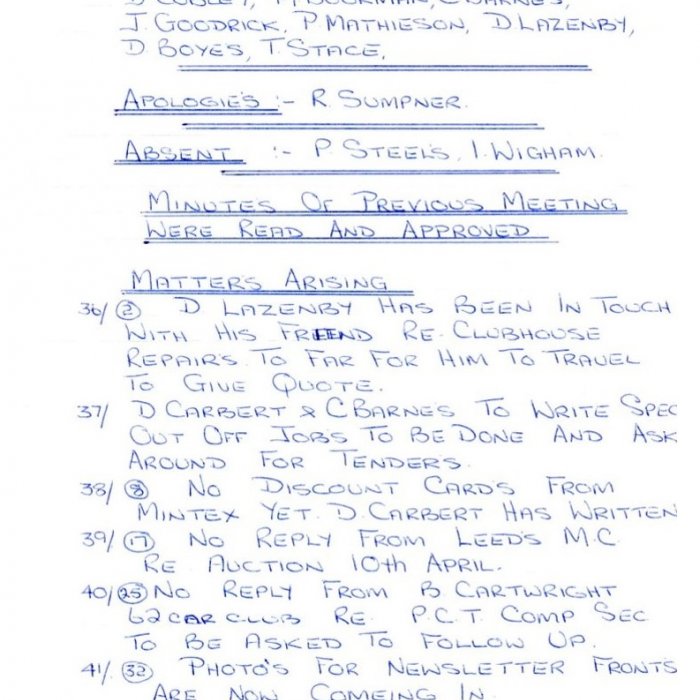 J. GOODRICK, P. MATHIESON, D. LAZENBY,
D BOYES, T. STACE,
APOLOGIE'S :- R. SUMPNER.
ABSENT :- P. STEELS, I. WIGHAM.
MINUTES OF PREVIOUS MEETING
WERE READ AND APPROVED
MATTER'S ARISING
36/ (2) D LAZENBY HAS BEEN IN TOUCH
WITH HIS FRIEND RE. CLUBHOUSE
REPAIR'S. TO FAR FOR HIM TO TRAVEL
TO GIVE QUOTE.
37/ D CARBERT & C BARNES TO WRITE SPEC
OUT OFF JOBS TO BE DONE AND ASK
AROUND FOR TENDER'S.
38/ (8) NO DISCOUNT CARD'S FROM
MINTEX YET. D. CARBERT HAS WRITTEN
39/ (17) NO REPLY FROM LEED'S M.C.
RE AUCTION 10th APRIL.
40/ (25) NO REPLY FROM B CARTWRIGHT
62 CAR CLUB RE. P.C.T. COMP SEC
TO BE ASKED TO FOLLOW UP.
41/. (32) PHOTO'S FOR NEWSLETTER FRONTS
ARE NOW COMEING IN.